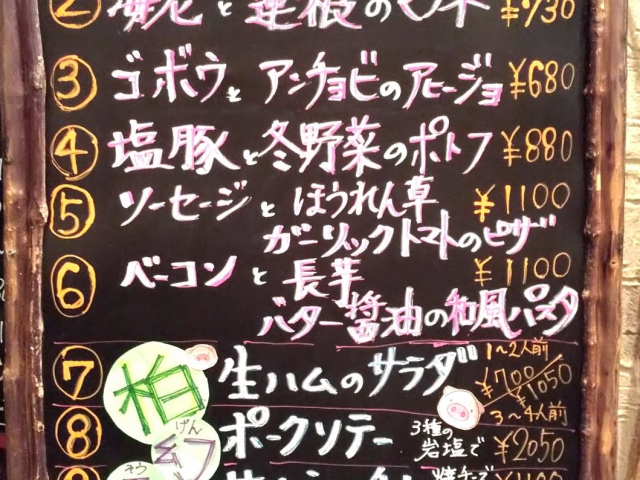 ② 海老と蓮根の
③ ゴボウとアンチョビのアヒージョ ¥680
④ 塩豚と冬野菜のポトフ ¥880
⑤ ソーセージとほうれん草 ¥1100
ガーリックトマトのピザ
⑥ ベーコンと長芋 ¥1100
バター醤油の和風パスタ
⑦ 柏 生ハムのサラダ 1〜2人前 ¥700 ¥1050
3〜4人前
⑧ 幻 げん ポークソテー 3種の岩塩で ¥2050